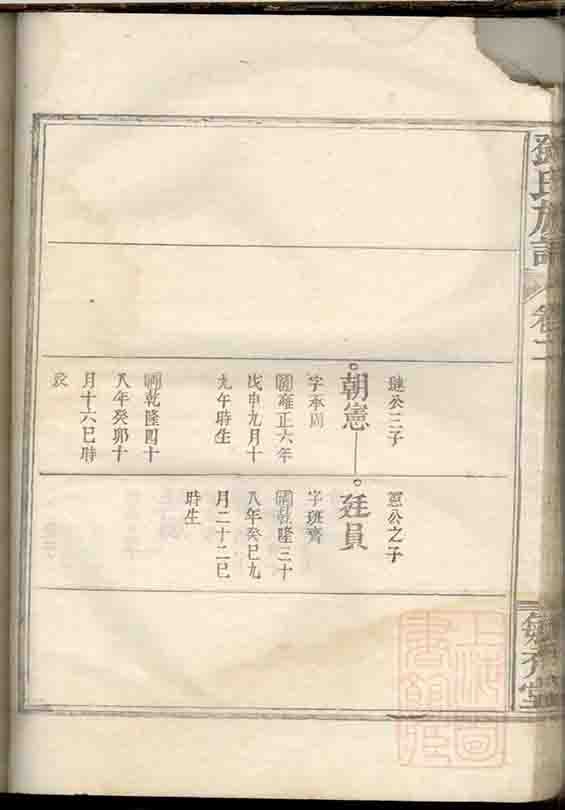 氏族譜
卷二
公三子
朝憲
字本周
國雍正六年
戊申九月十
九午時生
國乾隆四十
八年癸卯十
月十六巳時
歿
憲公之子
廷員
字班齊
國乾隆三十
八年癸巳九
月二十二巳
時生
上海圖
書館藏